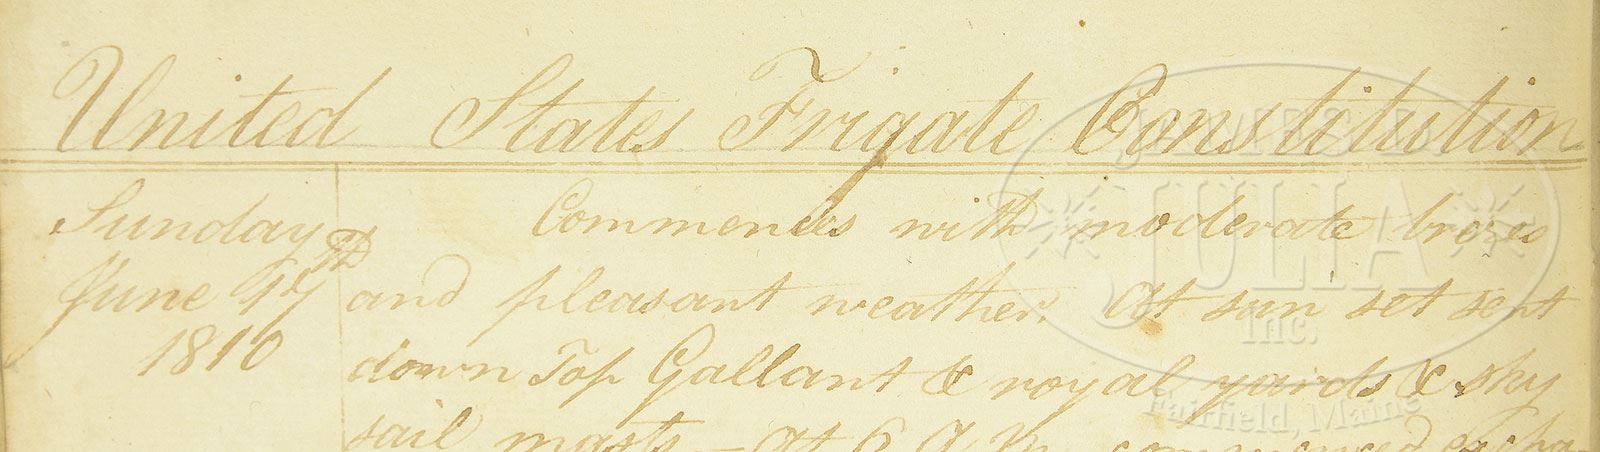 United States Frigate Constitution
Sunday
June 17th
1810
Commences with moderate brezes
and pleasant weather. At sun set sent
down Top Gallant & royal yards & sky
sail masts. — At 6 A.M. commenced
JAMES D.
JULIA
Inc.
Fairfield, Maine